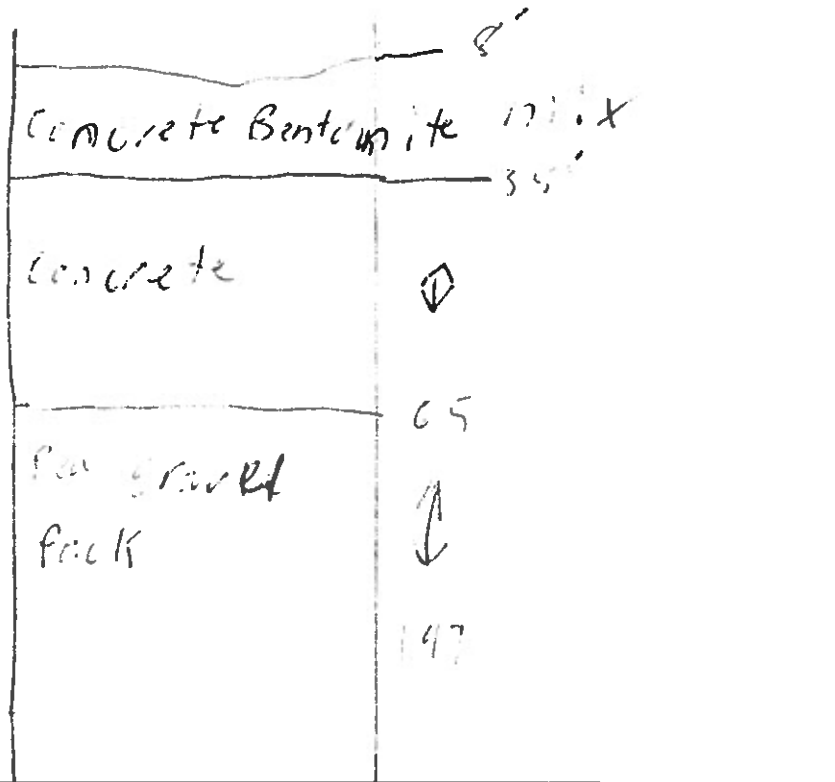 8'
Concrete Bentonite mix
35'
Concrete
65
Pea gravel
Pack
197